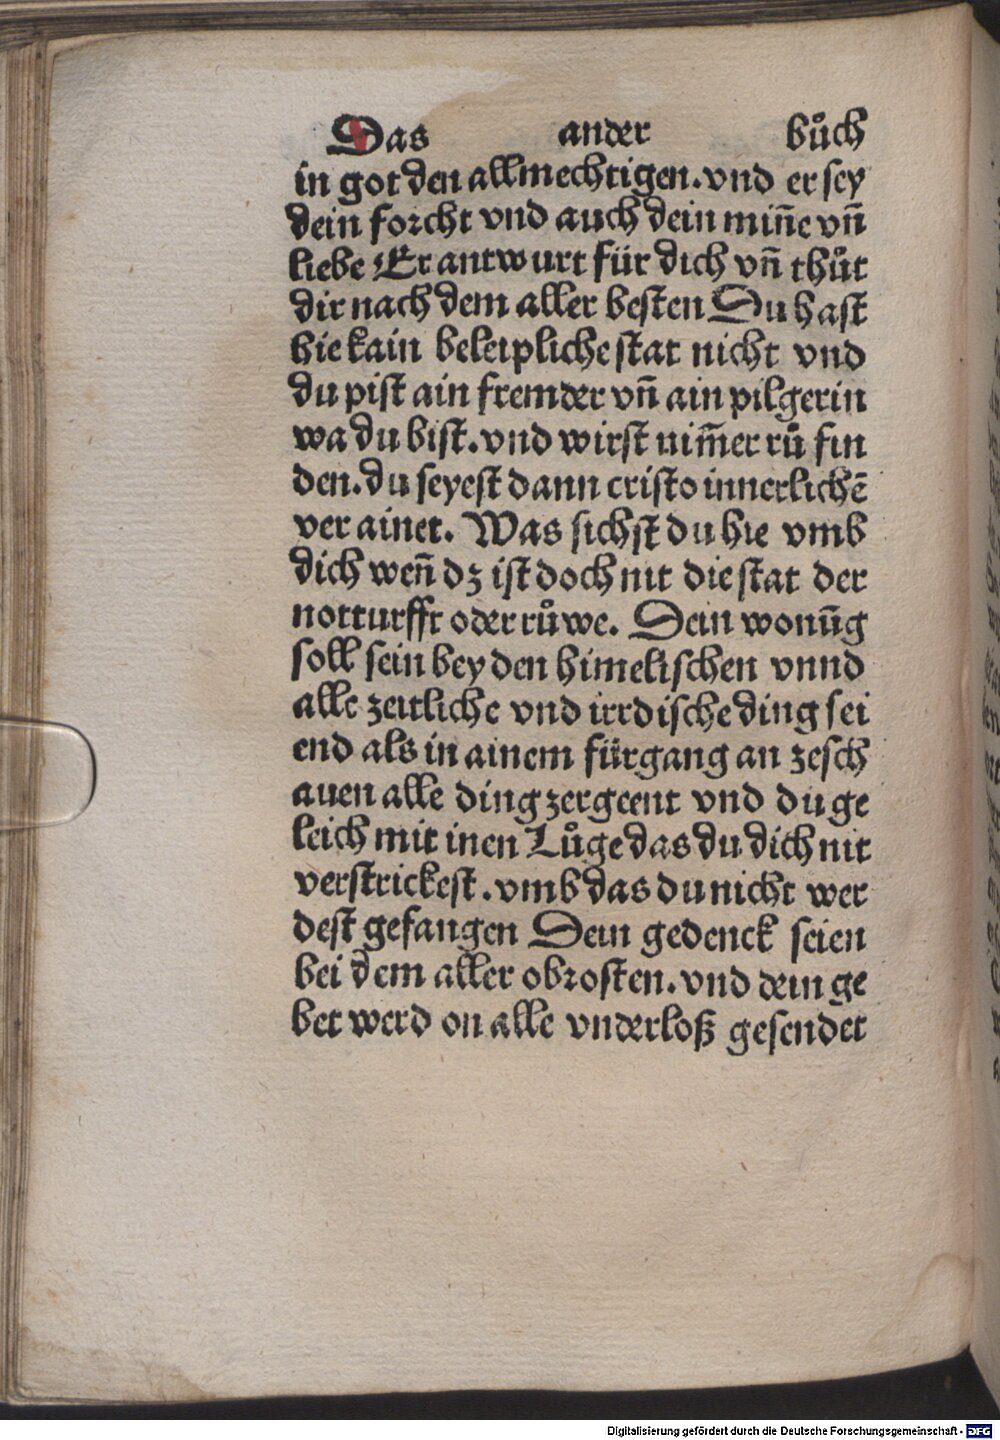 Das ander bůch
in got den allmechtigen.vnd er sey
dein forcht vnd auch dein miñe vñ
liebe Er antwurt für dich vñ thůt
dir nach dem aller besten Du hast
hie kain beleipliche stat nicht vnd
du pist ain fremder vñ ain pilgerin
wa du bist.vnd wirst nim̃er rů fin
den.du seyest dann cristo innerlichẽ
ver ainet. Was sichst du hie vmb
dich weñ dz ist doch nit die stat der
notturfft oder růwe. Dein wonũg
soll sein bey den himelischen vnnd
alle zeitliche vnd irrdische ding sei
end als in ainem fürgang an zesch
auen alle ding zergeent vnd du ge
leich mit inen Lůge das du dich nit
verstrickest.vmb das du nicht wer
dest gefangen Dein gedenck seien
bei dem aller obrosten.vnd dein ge
bet werd on alle vnderloß gesendet
Digitalisierung gefördert durch die Deutsche Forschungsgemeinschaft - DFG